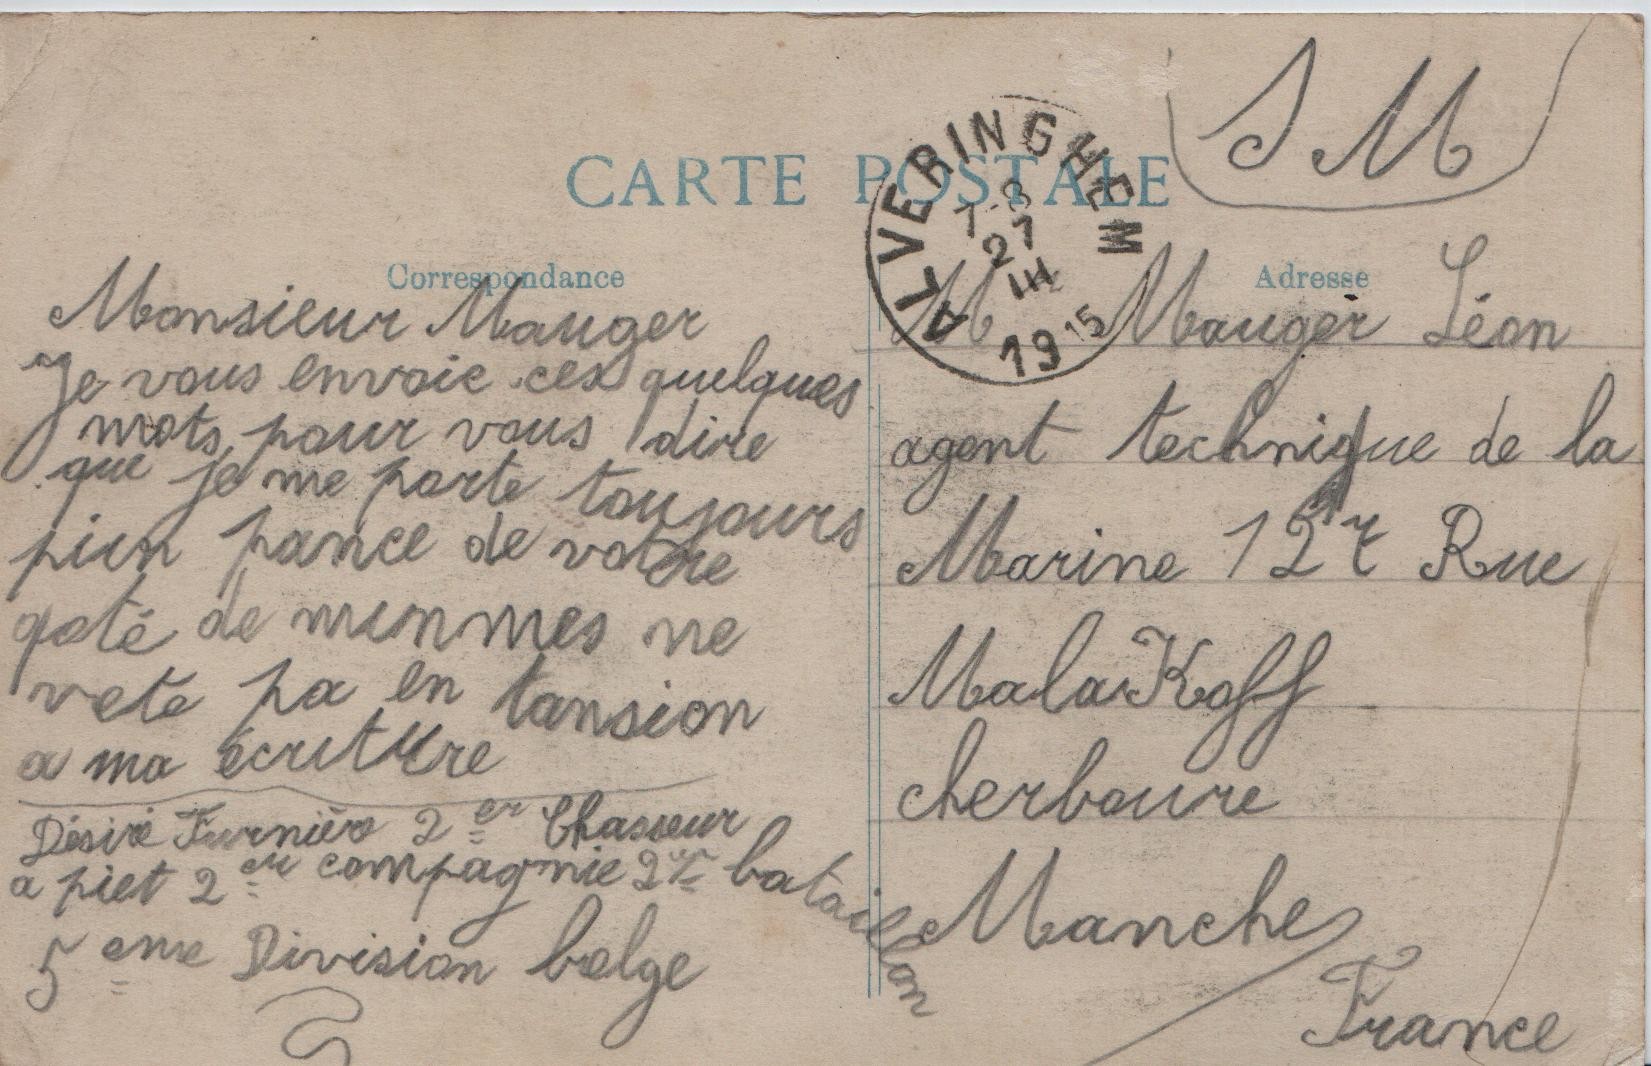 CARTE POSTALE
SM
ALVERINGHEM
7-8
27
III
1915
Correspondance
Monsieur Mauger
Je vous envoie ces quelques
mots pour vous dire
que je me porte toujours
pien pance de votre
coté de mimmes ne
vete pa en tansion
a ma écriture
Désiré Furnière 2er Chasseur
a piet 2er compagnie 2er bataillon
5eme Division belge
Adresse
M Mauger Léon
agent technique de la
Marine Rue
MalaKoff
cherboure
Manche
France